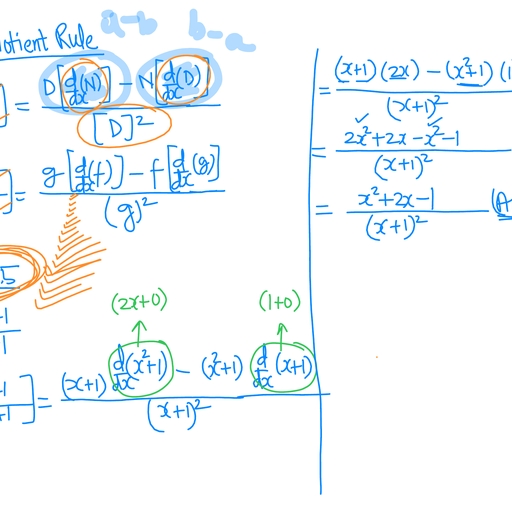 otient Rule
a-b b-a
] = D[d/dx(N)] - N[d/dx(D)] / [D]²
] = g[d/dx(f)] - f[d/dx(g)] / (g)²
.5
+1 / 1
(2x+0) (1+0)
+1 / +1 ] = (x+1) d/dx(x²+1) - (x²+1) d/dx(x+1) / (x+1)²
= (x+1)(2x) - (x²+1)(1 / (x+1)²
= 2x²+2x-x²-1 / (x+1)²
= x²+2x-1 / (x+1)² (A